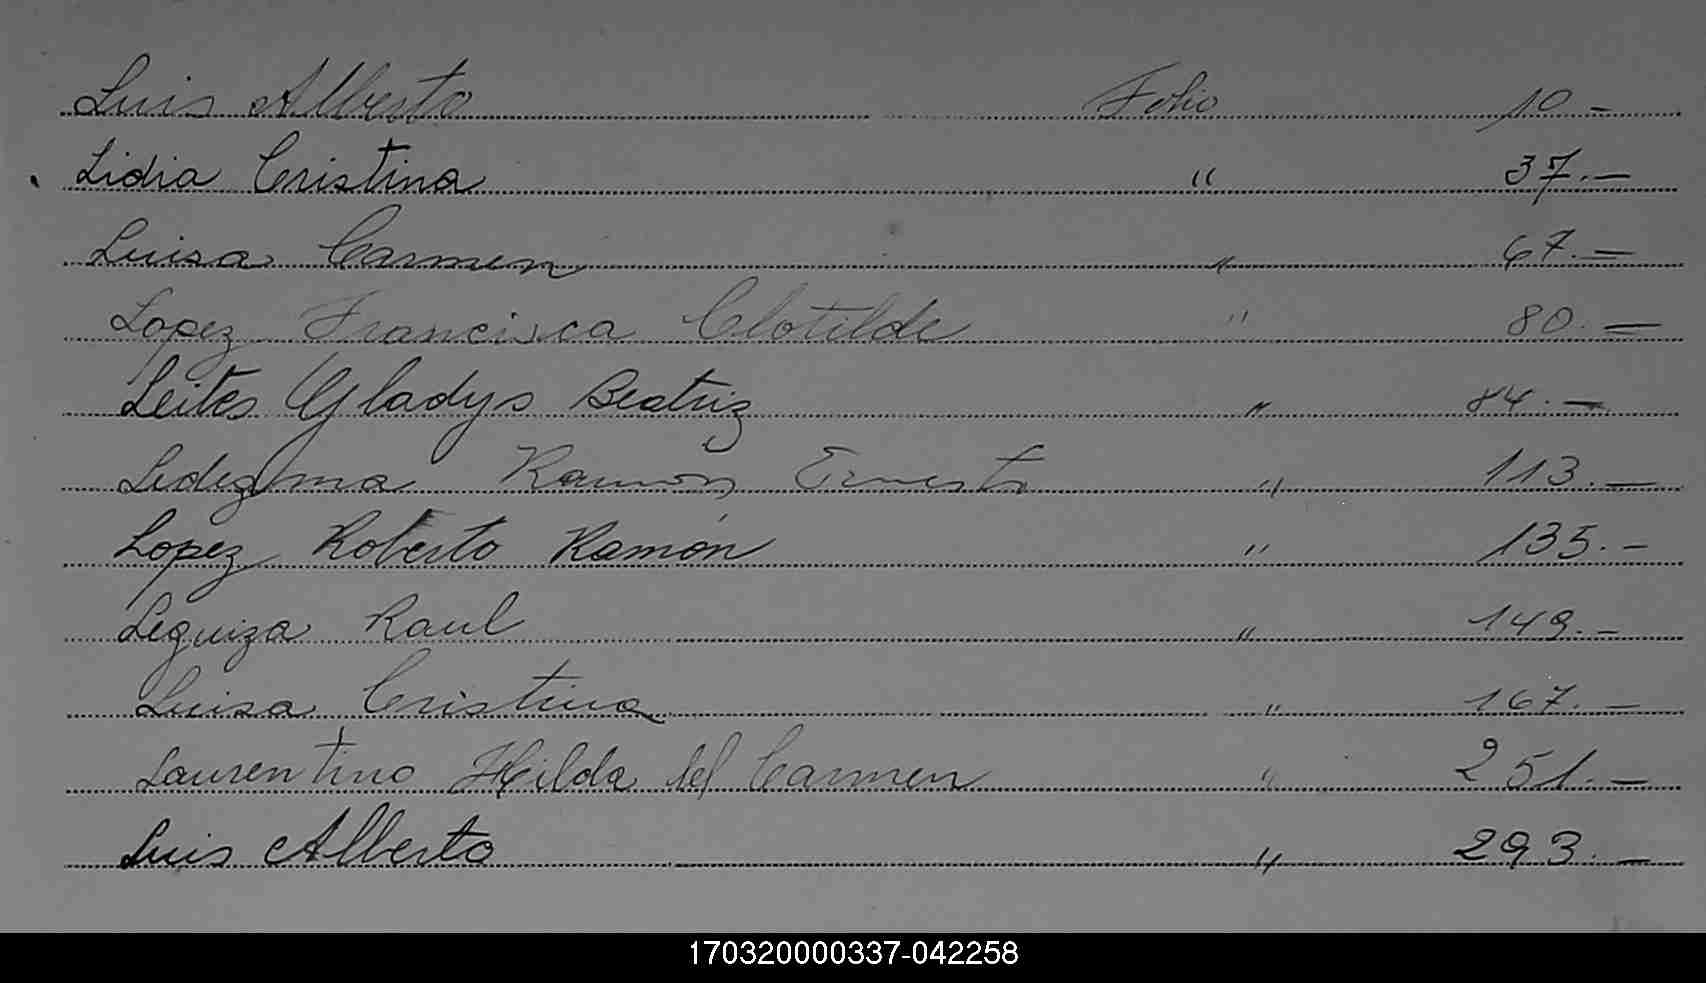 Luis Alberto Folio 10.-
Lidia Cristina " 37.-
Luisa Carmen " 67.-
Lopez Francisca Clotilde " 80.-
Leites Gladys Beatriz " 84.-
Ledezma Ramón Ernesto " 113.-
Lopez Roberto Ramón " 135.-
Leguiza Raul " 149.-
Luisa Cristina " 167.-
Laurentino Hilda del Carmen " 251.-
Luis Alberto " 293.-
170320000337-042258